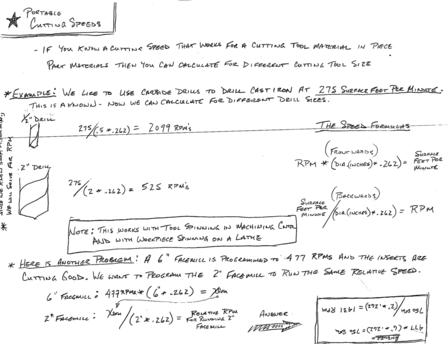 PORTABLE
CUTTING SPEEDS
- IF YOU KNOW A CUTTING SPEED THAT WORKS FOR A CUTTING TOOL MATERIAL IN PIECE
PART MATERIALS THEN YOU CAN CALCULATE FOR DIFFERENT CUTTING TOOL SIZE
* EXAMPLE: WE LIKE TO USE CARBIDE DRILLS TO DRILL CAST IRON AT 275 SURFACE FEET PER MINUTE.
THIS IS A KNOWN - NOW WE CAN CALCULATE FOR DIFFERENT DRILL SIZES.
1/2" DRILL
275/(.5 * .262) = 2099 RPM's
THE SPEED FORMULAS
(FRONTWARDS)
RPM * (DIA (INCHES) * .262) = SURFACE FEET PER MINUTE
2" DRILL
275/(2 * .262) = 525 RPM's
(BACKWARDS)
SURFACE FEET PER MINUTE / (DIA (INCHES) * .262) = RPM
WE WILL SOLVE FOR RPM
NOTE: THIS WORKS WITH TOOL SPINNING IN MACHINING CNTR
AND WITH WORKPIECE SPINNING ON A LATHE
* HERE IS ANOTHER PROBLEM: A 6" FACEMILL IS PROGRAMMED TO 477 RPMS AND THE INSERTS ARE
CUTTING GOOD. WE WANT TO PROGRAM THE 2" FACEMILL TO RUN THE SAME RELATIVE SPEED.
6" FACEMILL: 477 RPM's * (6" * .262) = X SFM
2" FACEMILL: X SFM / (2" * .262) = RELATIVE RPM FOR RUNNING 2" FACEMILL
ANSWER
477 * (6 * .262) = 750 SFM
750 SFM / (2 * .262) = 1431 RPM